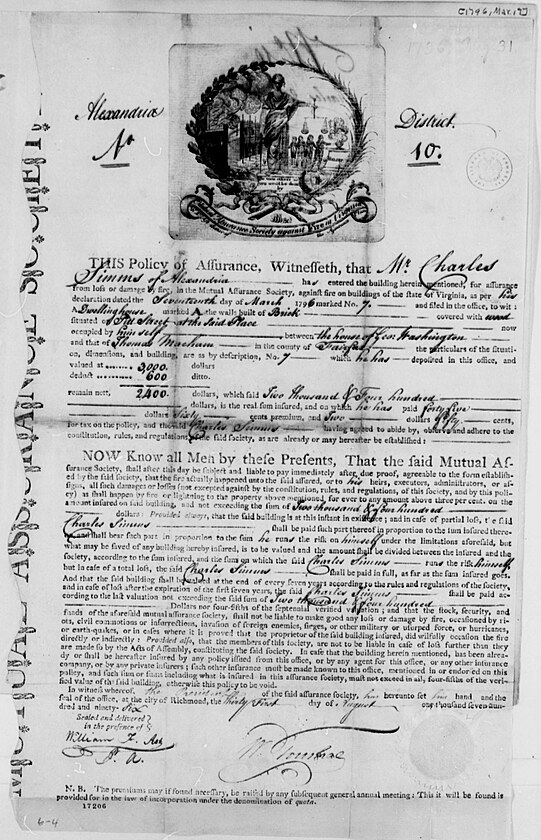 [1796, Mar. 17]
31
Alexandria
District.
No
10.
Mutual Assurance Society against Fire
MUTUAL ASSURANCE SOCIETY.
THIS Policy of Assurance, Witnesseth, that Mr. Charles
Simms of Alexandria has entered the building herein mentioned, for assurance
from loss or damage by fire, in the Mutual Assurance Society, against fire on buildings of the state of Virginia, as per his
declaration dated the Seventeenth day of March 1796 marked No. 7. and filed in the office, to wit:
a Dwelling house marked A the walls built of Brick covered with wood
situated at said Place now
occupied by himself between the house of Geo: Washington
and that of Thomas in the county of Fairfax the particulars of the situati-
on, dimensions, and building, are as by description, No. 7 which he has deposited in this office, and
valued at 3,000. dollars
deduct 600 ditto.
remain nett. 2,400. dollars, which said Two thousand & Four hundred
dollars, is the real sum insured, and on which he has paid forty five
dollars Sixty cents premium, and Two dollars fifty cents,
for tax on the policy, and the said Charles Simms having agreed to abide by, observe and adhere to the
constitution, rules, and regulations of the said society, as are already or may hereafter be established:
NOW Know all Men by these Presents, That the said Mutual As-
surance Society, shall after this day be subject and liable to pay immediately after, due proof, agreeable to the form establish-
ed by the said society, that the fire actually happened unto the said assured, or to his heirs, executors, administrators, or as-
signs, all such damages or losses (not excepted against by the constitution, rules, regulations, of this society, and by this poli-
cy) as shall happen by fire or lightning to the property above mentioned for ever to any amount above three per cent. on the
amount insured on said building, and not exceeding the sum of Two thousand & four hundred
dollars: Provided always, that the said building is at this instant in existence; and in case of partial loss, the said
Charles Simms shall be paid such part thereof in proportion to the sum insured there-
on and shall bear such part in proportion to the sum he runs the risk on himself under the limitations aforesaid, but
what may be saved of any building hereby insured, is to be valued and the amount shall be divided between the insured and the
society, according to the sum insured, and the sum on which the said Charles Simms runs the risk himself
but in case of a total loss, the said Charles Simms shall be paid in full, as far as the sum insured goes.
And that the said building shall be valued at the end of every seven years according to the rules and regulations of the society,
and in case of loss after the expiration of the first seven years, the said Charles Simms shall be paid ac-
cording to the last valuation not exceeding the said sum of Two thousand & four hundred
Dollars nor four-fifths of the septennial verified valuation; and that the stock, security, and
funds of the aforesaid mutual assurance society, shall not be liable to make good any loss or damage by fire, occasioned by ri-
ots, civil commotions or insurrections, invasion of foreign enemies, sieges, or other military or usurped force, or hurricanes,
or earth-quakes, or in cases where it is proved that the proprietor of the said building insured, did wilfully occasion the fire
directly or indirectly: Provided also, that the members of this society, are not to be liable in case of loss further than they
are made so by the Acts of Assembly, constituting the said society. In case that the building herein mentioned, has been alrea-
dy or shall be hereafter insured by any policy issued from this office, or by any agent for this office, or any other insurance
company, or by any private insurers; such other insurance must be made known to this office, mentioned in or endorsed on this
policy, and such sum or sums including what is insured in this assurance society, must not exceed in all, four-fifths of the veri-
fied value of the said buildings, otherwise this policy to be void.
In witness whereof, the president of the said assurance society, has hereunto set his hand and the
seal of the office, at the city of Richmond, the thirty First day of August one thousand seven hun-
dred and ninety-six
Sealed and delivered
in the presence of
William F. Ast
P. A.
N. B. The premiums may if found necessary, be raised by any subsequent general annual meeting: This it will be found is
provided for in the law of incorporation under the denomination of quota.
17206
6-4